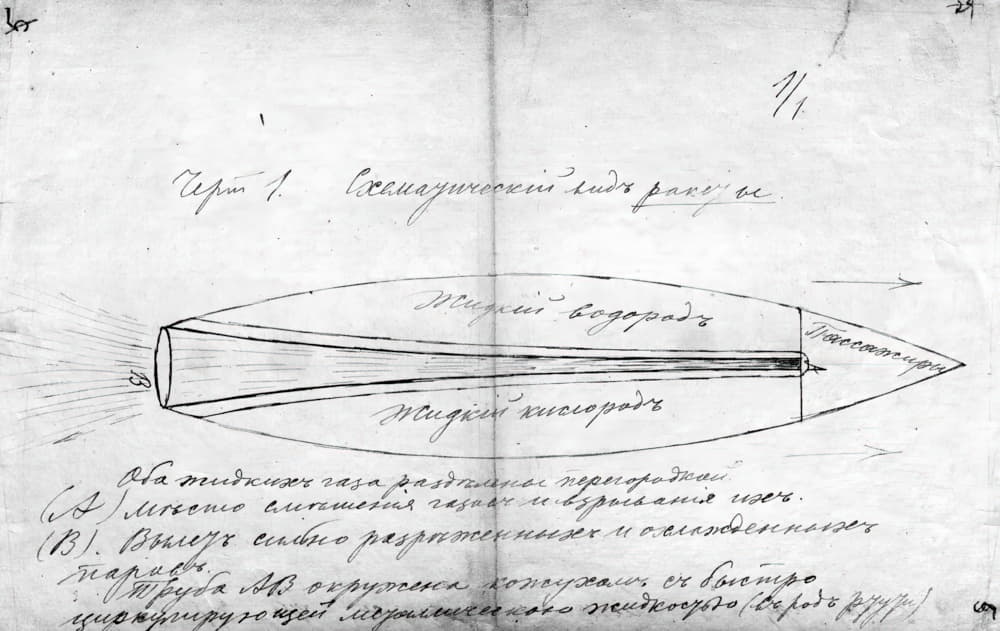 1/1.
Черт 1. Схематическій видъ ракеты.
Жидкій водородъ
Пассажиры
В
Жидкій кислородъ
Оба жидкихъ газа раздѣлены перегородкой
(А) Мѣсто смѣшенія газовъ и взрыванія ихъ.
(В). Вылетъ сильно разрѣженныхъ и охлажденныхъ
паровъ.
Труба АВ окружена кожухомъ съ быстро
циркулирующей металлическою жидкостью (въ родѣ ртути)